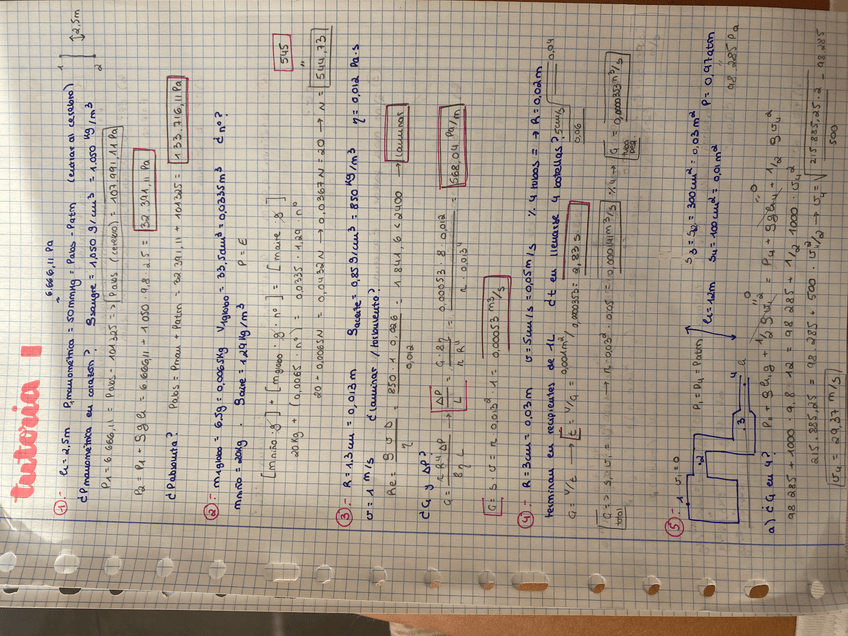 tutoria 1
①- h = 2,5m Pmanométrica = 50mmHg = Pabs - Patm (entrar al cerebro)
6.666,11 Pa
1 2 2,5m
¿Pmanométrica en corazón? ρsangre = 1,050 g/cm³ = 1.050 kg/m³
P1 = 6.666,11 = Pabs - 101325 => Pabs (cerebro) = 107.991,11 Pa
P2 = P1 + ρgh = 6.666,11 + 1.050 · 9,8 · 2,5 = 32.391,11 Pa
¿Pabsoluta? Pabs = Pman + Patm = 32.391,11 + 101325 = 133.716,11 Pa
②- m1globo = 6,5g = 0,0065Kg V1globo = 33,5dm³ = 0,0335m³ ¿nº?
mniño = 20Kg ρaire = 1,29Kg/m³ P = E
[mniño · g] + [mglobo · g · nº] = [maire · g]
20Kg + (0,0065 nº) = 0,0335 · 1,29 · nº
20 - 0,0065N = 0,0432N → 0,0367N = 20 → N = 544,73
545
③- R = 1,3cm = 0,013m ρaceite = 0,85g/cm³ = 850 Kg/m³ η = 0,012 Pa·s
v = 1 m/s ¿laminar / turbulento?
Re = ρ v D / η = 850 · 1 · 0,026 / 0,012 = 1.841,6 < 2400 → laminar
¿G y ΔP?
G = π R⁴ ΔP / 8 η L → ΔP / L = G · 8η / π R⁴ = 0,00053 · 8 · 0,012 / π · 0,013⁴ = 568,04 Pa/m
G = S · v = π · 0,013² · 1 = 0,00053 m³/s
④- R = 3cm = 0,03m v = 5cm/s = 0,05m/s % 4 tubos = → R = 0,02m
terminan en recipientes de 1L ¿t en llenarse 4 botellas?
G = V/t → t = V/G = 0,001m³ / 0,000353 = 2,83 s
G total = S · v = π · 0,03² · 0,05 = 0,000141m³/s
⑤- 1 v1 = 0 P1 = P4 = Patm S3 = S2 = 300cm² = 0,03m²
h = 12m S4 = 100cm² = 0,01m² P = 0,97atm
98.285 Pa
2 3 4
a) ¿G en 4? P1 + ρgh1 + 1/2 ρv1² = P4 + ρgh4 + 1/2 ρv4²
98.285 + 1000 · 9,8 · 12 = 98.285 + 1/2 · 1000 · v4²
215.885,25 = 98.285 + 500 · v4²
v4 = 29,37 m/s